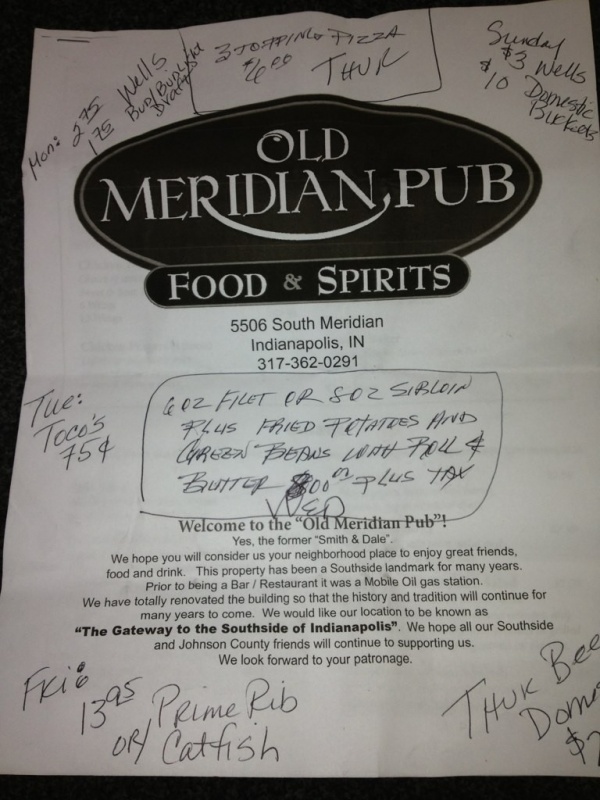 Mon: 2 75 Wells
1 75 Bud/Bud Light
Drafts
3 TOPPING PIZZA
$6 00 THUR
Sunday
$3 Wells
$10 Domestic
Buckets
OLD
MERIDIAN PUB
FOOD & SPIRITS
5506 South Meridian
Indianapolis, IN
317-362-0291
Tue:
Taco's
75¢
6 OZ FILET OR 8 OZ SIRLOIN
PLUS FRIED POTATOES AND
GREEN BEANS WITH ROLL &
BUTTER PLUS TAX
WED
Welcome to the "Old Meridian Pub"!
Yes, the former "Smith & Dale".
We hope you will consider us your neighborhood place to enjoy great friends,
food and drink. This property has been a Southside landmark for many years.
Prior to being a Bar / Restaurant it was a Mobile Oil gas station.
We have totally renovated the building so that the history and tradition will continue for
many years to come. We would like our location to be known as
"The Gateway to the Southside of Indianapolis". We hope all our Southside
and Johnson County friends will continue to supporting us.
We look forward to your patronage.
Fri:
13 95 Prime Rib
OR/ Catfish
THUR Bee
Dome
$